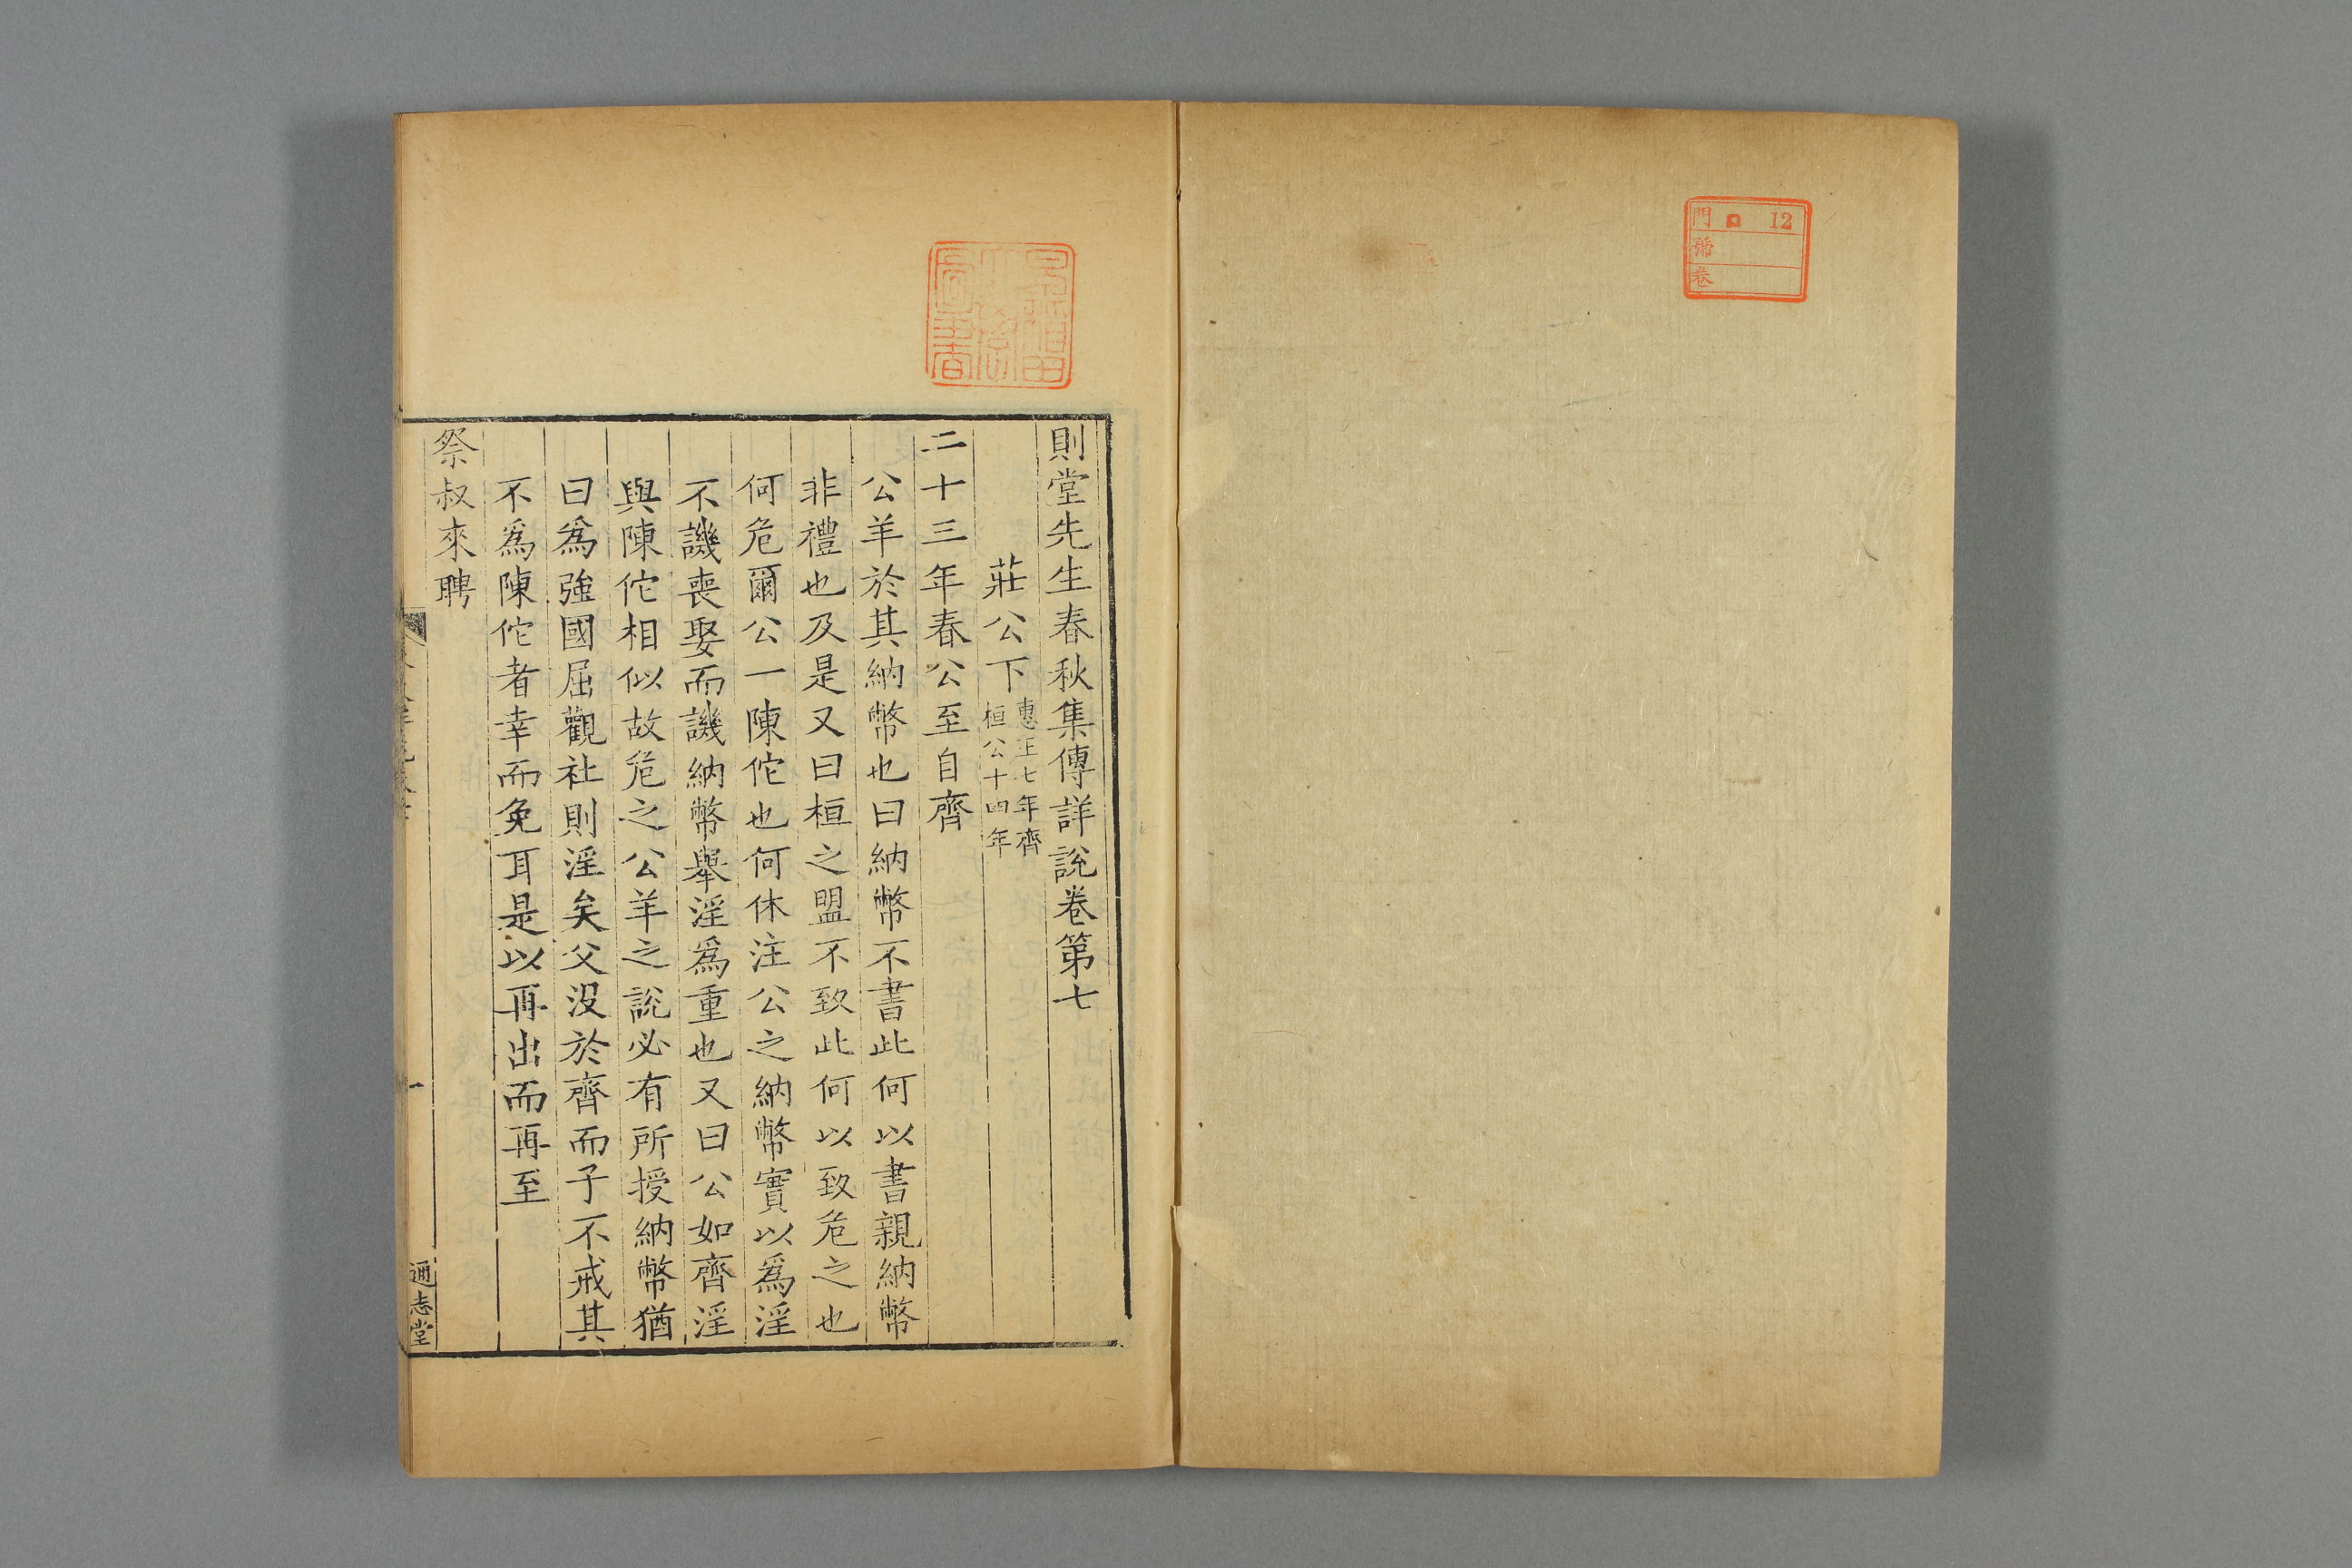 門 12
號
卷
則堂先生春秋集傳詳說卷第七
莊公下惠王七年齊
桓公十四年
二十三年春公至自齊
公羊於其納幣也曰納幣不書此何以書親納幣
非禮也及是又曰桓之盟不致此何以致危之也
何危爾公一陳佗也何休注公之納幣實以爲淫
不譏喪娶而譏納幣舉淫爲重也又曰公如齊淫
與陳佗相似故危之公羊之說必有所授納幣猶
曰爲強國屈觀社則淫矣父沒於齊而子不戒其
不爲陳佗者幸而免耳是以再出而再至
祭叔來聘
一
通志堂